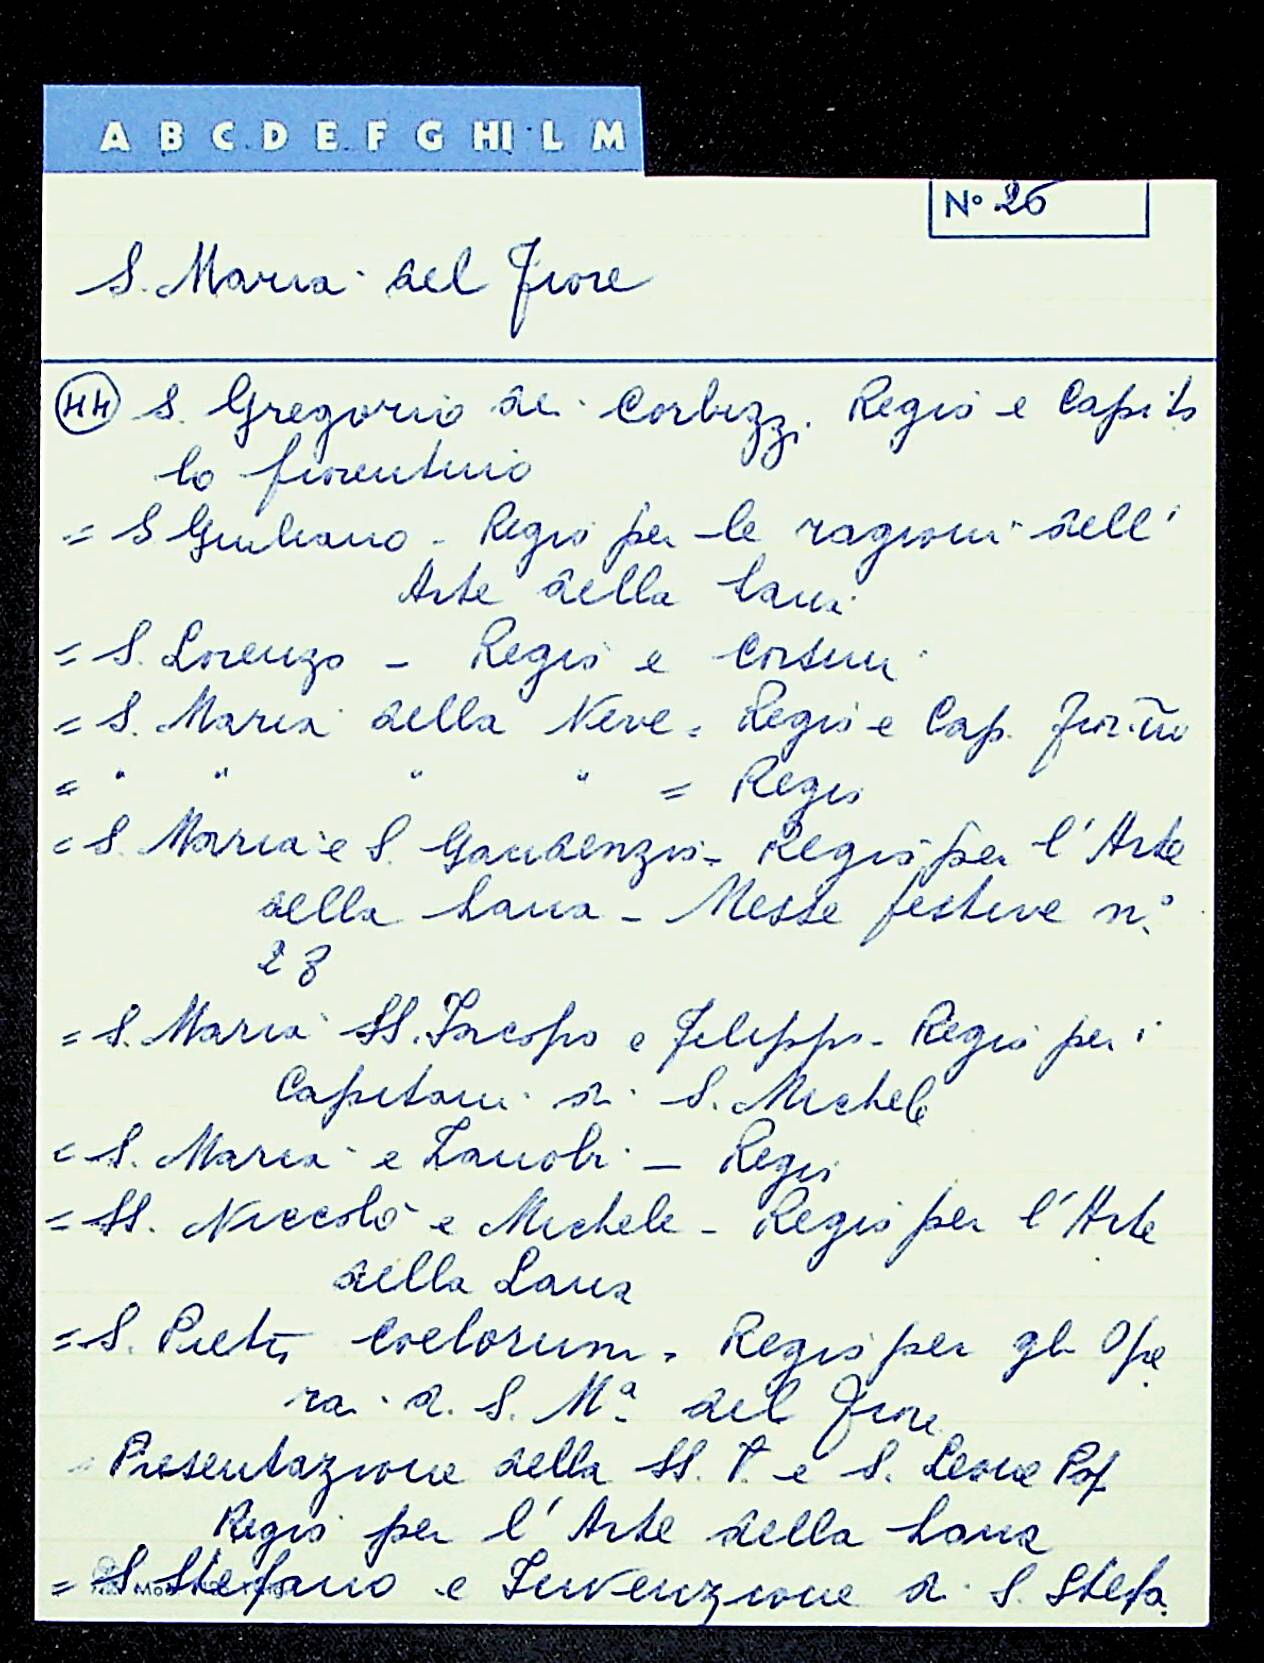 A B C D E F G HI L M
N° 26
S. Maria del Fiore
44 S. Gregorio dei Corbizzi. Regio e Capito
lo fiorentino
= S Giuliano - Regio per le ragioni dell'
Arte della Lana
= S. Lorenzo - Regio e Corsini
= S. Maria della Neve = Regio e Cap. fior.no
= " " " " = Regio
= S. Maria e S. Gaudenzio - Regio per l'Arte
della Lana - Messe festive n.°
28
= S. Maria SS. Jacopo e Filippo - Regio per i
Capitani di S. Michele
= S. Maria e Zanobi - Regio
= SS. Niccolò e Michele - Regio per l'Arte
della Lana
= S. Pietro Coelorum = Regio per gli Ope
rai di S. Mª del Fiore
Presentazione della SS. V. e S. Leone Pap
Regio per l'Arte della Lana
= S Stefano e Invenzione di S. Stefa